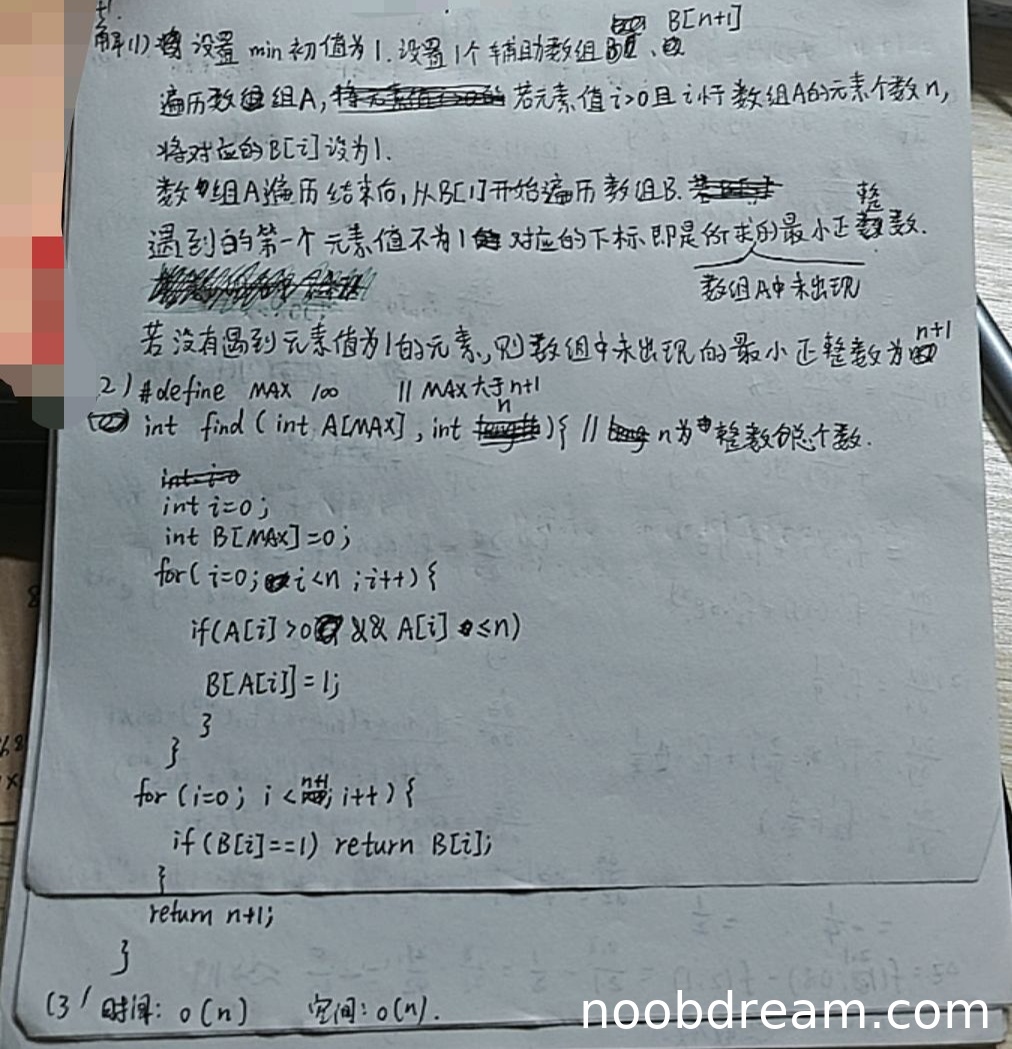 解(1) 设置 min 初值为1. 设置1个辅助数组 B[n+1]
遍历数组A, 若元素值i>0且i小于数组A的元素个数n,
将对应的B[i]设为1.
数组A遍历结束后,从B[1]开始遍历数组B.
遇到的第一个元素值不为1 对应的下标即是所求的最小正整数.
数组A中未出现
若没有遇到元素值为1的元素,则数组中未出现的最小正整数为n+1
2) #define MAX 100 // MAX大于n+1
int find (int A[MAX], int n){ // n为整数的总个数.
int i=0;
int B[MAX]=0;
for(i=0; i<n ;i++){
if(A[i]>0 && A[i]≤n)
B[A[i]]=1;
}
}
for (i=0; i<n+1; i++){
if(B[i]==1) return B[i];
}
return n+1;
}
(3) 时间: O(n) 空间: O(n).
noobdream.com